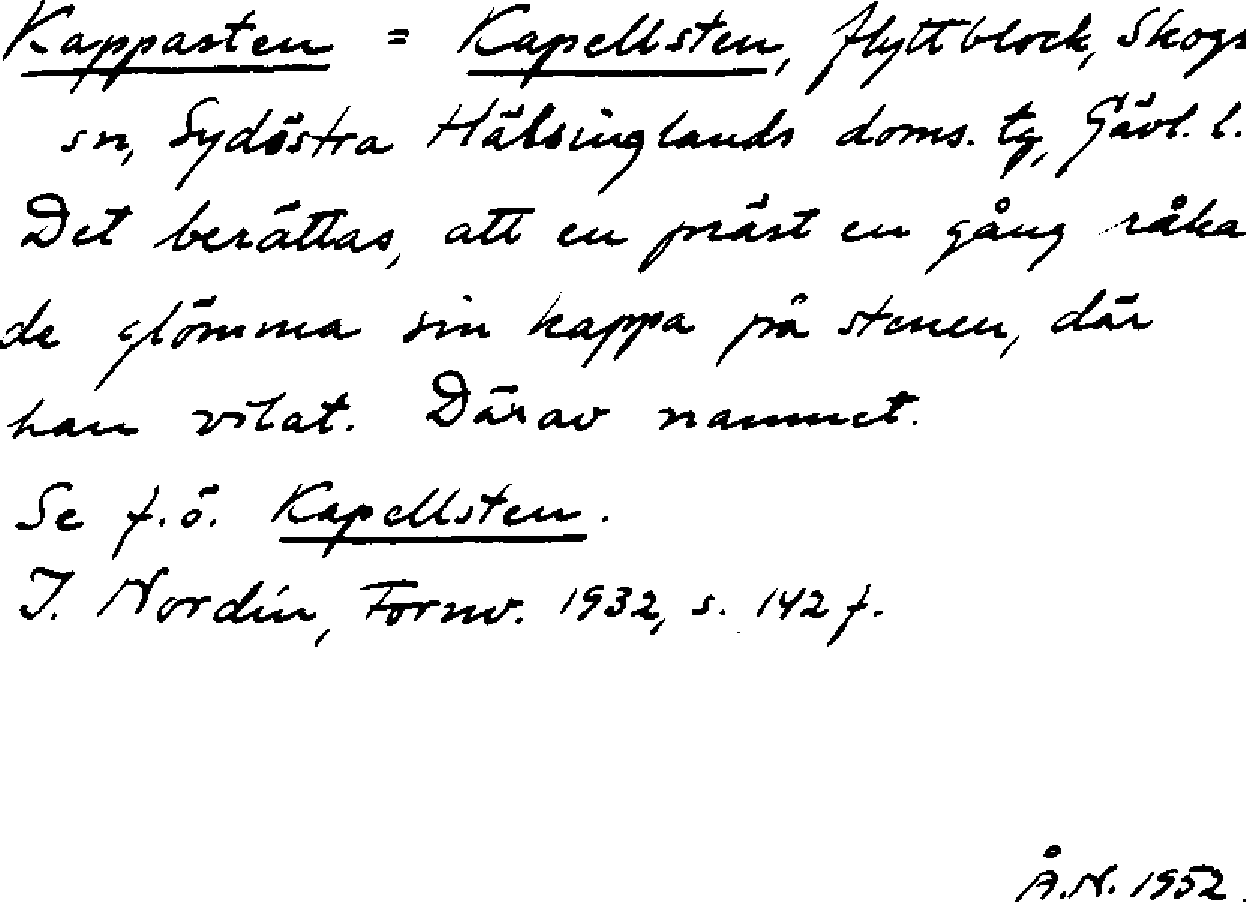 Kappasten = Kapellsten, flyttblock, Skogs
sn, Sydöstra Hälsinglands doms. tg, Gävl. l.
Det berättas, att en präst en gång råka
de glömma sin kappa på stenen, där
han vilat. Därav namnet.
Se f.ö. Kapellsten.
I. Nordin, Fornv. 1932, s. 142 f.
Å.N. 1952.